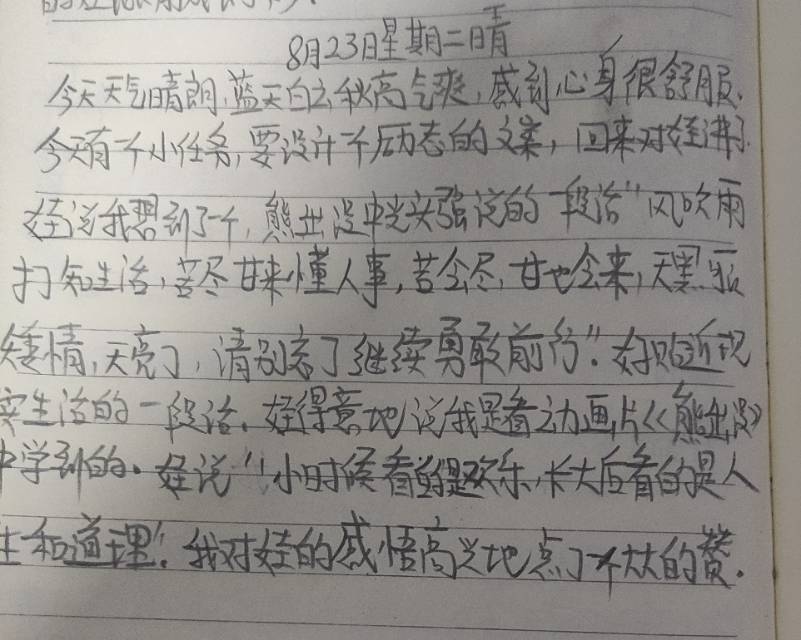 8月23日星期二晴
今天天气晴朗,蓝天白云秋高气爽,感到心身很舒服.
今天有个小任务,要设计个励志的文案,回来对娃讲了
娃说我想到了一个,熊出没中光头强说的一段话"风吹雨
打知生活,苦尽甘来懂人事,苦会尽,甘也会来,天黑
矫情,天亮了,请别忘了继续勇敢前行".好贴近现
实生活的一段话.娃得意地说我是看动画片《熊出没》
中学到的.娃说"小时候看的是欢乐,长大后看的是人
生和道理".我对娃的感悟高兴地点了个大大的赞.